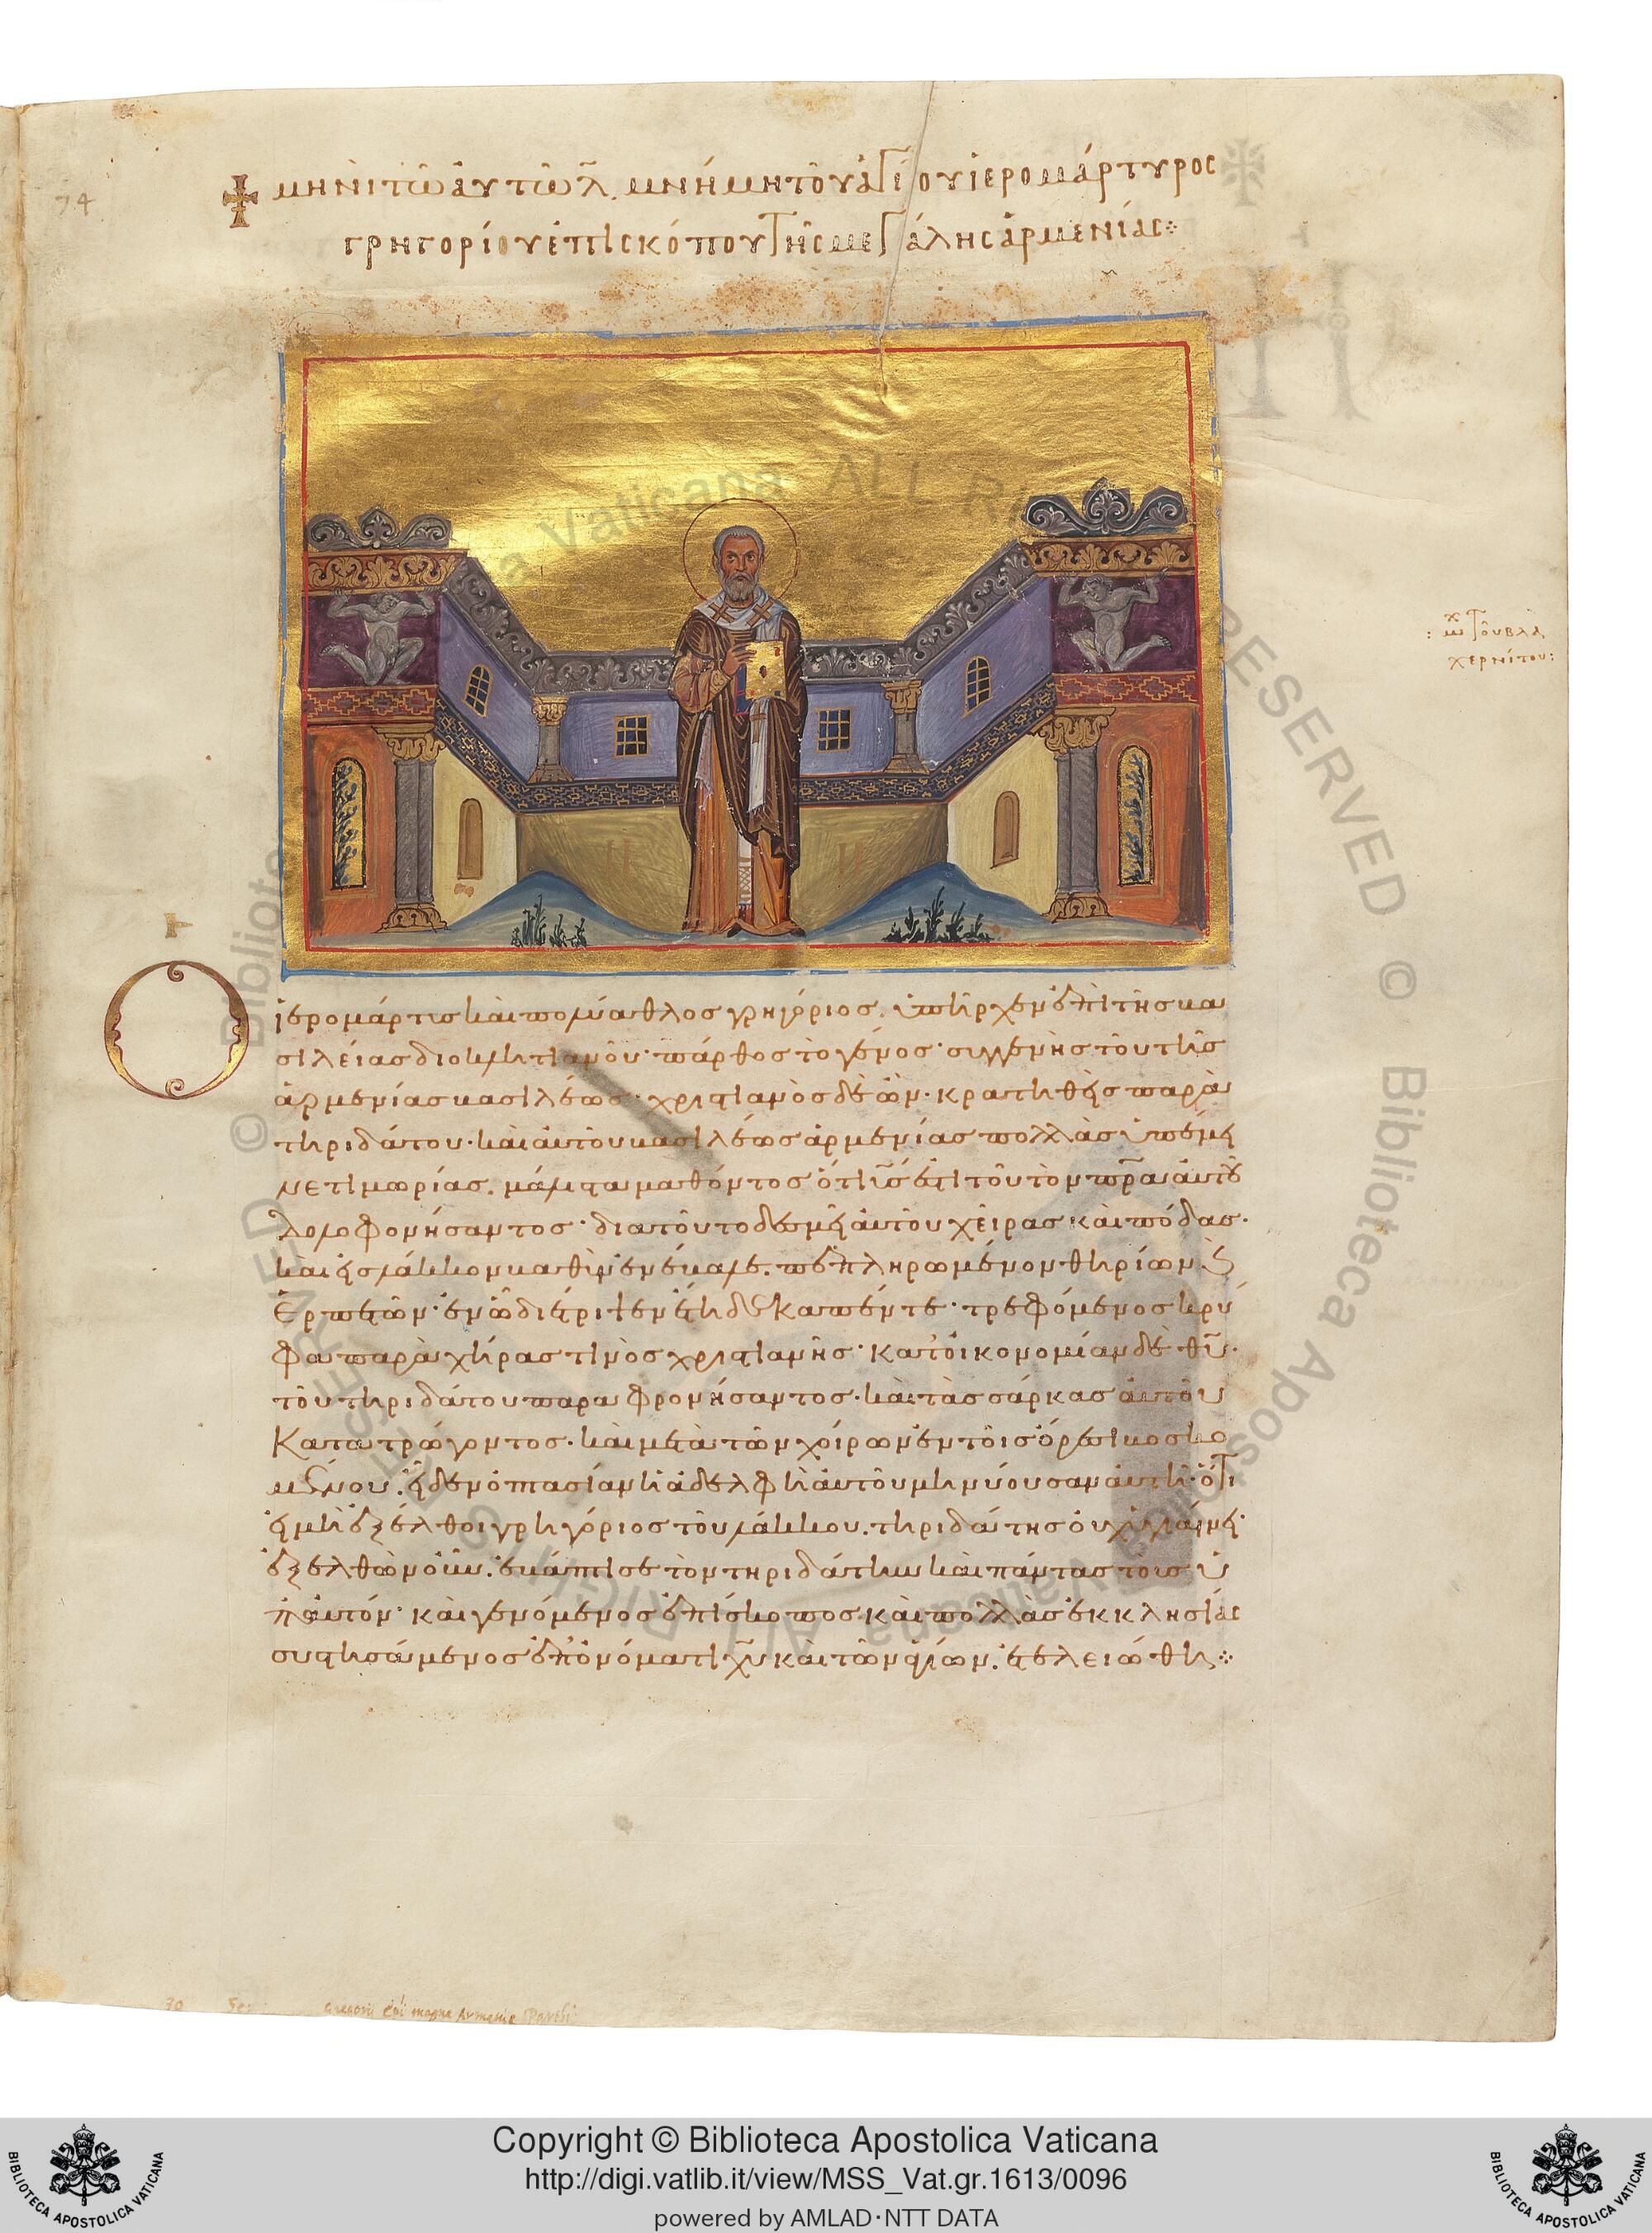 74
μηνὶ τῶ αὐτῶ λ̅. μνήμη τοῦ ἁγίου ἱερομάρτυρος
γρηγορίου ἐπισκόπου τῆς μεγάλης ἀρμενίας
χ
τοῦ βλα
χερνίτου:
Ο
ἱερομάρτυς καὶ πολύαθλος γρηγόριος. ὑπῆρχεν ἐπὶ τῆς βα
σιλείας διοκλητιανοῦ· πάρθος τὸ γένος· συγγενὴς τοῦ τῆς
ἀρμενίας βασιλέως· χριστιανὸς δὲ ὤν· κρατηθεὶς παρὰ
τηριδάτου· καὶ αὐτοῦ βασιλέως ἀρμενίας πολλὰς ὑπέμει
νε τιμωρίας. μάλιστα μαθόντος ὅτι υἱός ἐστι τοῦ τὸν πρα αὐτοῦ
δολοφονήσαντος· διατοῦτο δεσμεῖ αὐτοῦ χεῖρας καὶ πόδας·
καὶ εἰς λάκκον βαθὺν ἐνέβαλε. πεπληρωμένον θηρίων καὶ
ἑρπετῶν· ἐν ᾧ διετήριτεν ἔτη δεκαπέντε· τρεφόμενος κρύ
φα παρὰ χήρας τινὸς χριστιανῆς· κατοικονομίαν δὲ θυ·
τοῦ τηριδάτου παραφρονήσαντος· καὶ τὰς σάρκας αὐτοῦ
κατατρώγοντος· καὶ μετὰ τῶν χοίρων ἐν τοῖς ὄρεσι βοσκο
μένου. εἶδεν ὀπτασίαν ἡ ἀδελφὴ αὐτοῦ μηνύουσαν αὐτῇ. ὅτι
εἰ μὴ ἐξέλθοι γρηγόριος τοῦ λάκκου. τηριδάτης οὐχ ὑγιαίνει·
ἐξελθὼν οὖν. ἐβάπτισε τὸν τηριδάτην καὶ πάντας τοὺς ὑ
π᾽ αὐτόν· καὶ γενόμενος ἐπίσκοπος καὶ πολλὰς ἐκκλησίας
συστησάμενος ἐπ᾽ ὀνόματι χυ καὶ τῶν ἁγίων. ἐτελειώθη
30
gregorii epi magne Armenie
Copyright © Biblioteca Apostolica Vaticana
http://digi.vatlib.it/view/MSS_Vat.gr.1613/0096
powered by AMLAD·NTT DATA
BIBLIOTECA APOSTOLICA VATICANA
BIBLIOTECA APOSTOLICA VATICANA
© Biblioteca Apostolica Vaticana ALL RIGHTS RESERVED © Biblioteca Apostolica Vaticana ALL RIGHTS RESERVED